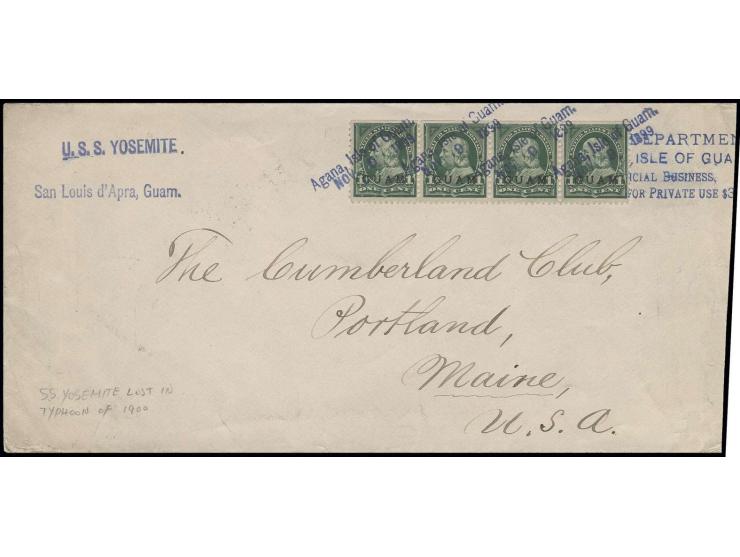 U.S.S. YOSEMITE.
San Louis d'Apra, Guam.
Agana, Isle of Guam.
NOV 9 1899
Agana, Isle of Guam.
1899
Agana, Isle of Guam.
1899
Agana, Isle of Guam.
1899
1 GUAM 1
ONE CENT
1 GUAM 1
ONE CENT
1 GUAM 1
ONE CENT
1 GUAM 1
ONE CENT
DEPARTMEN
, ISLE OF GUA
ICIAL BUSINESS,
FOR PRIVATE USE $3
The Cumberland Club,
Portland,
Maine,
U.S.A.
SS. YOSEMITE LOST IN
TYPHOON OF 1900